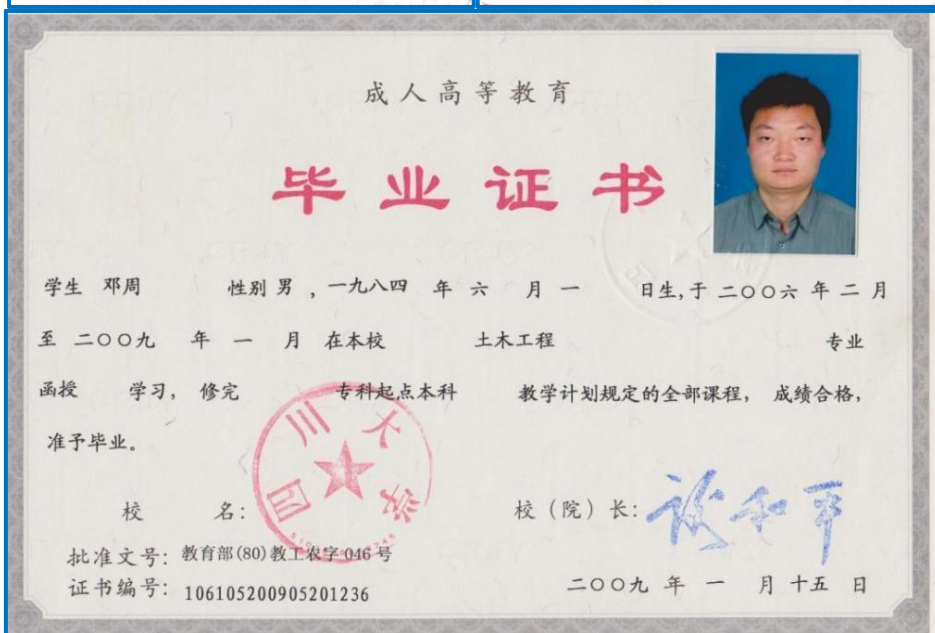 成人高等教育
毕业证书
学生 邓周 性别 男 , 一九八四 年 六 月 一 日生, 于 二〇〇六 年 二 月
至 二〇〇九 年 一 月 在本校 土木工程 专业
函授 学习, 修完 专科起点本科 教学计划规定的全部课程, 成绩合格,
准予毕业。
四川大学
校 名: 校 (院) 长: 谢和平
批准文号: 教育部(80)教工农字 046 号
证书编号: 106105200905201236
二〇〇九 年 一 月 十五 日